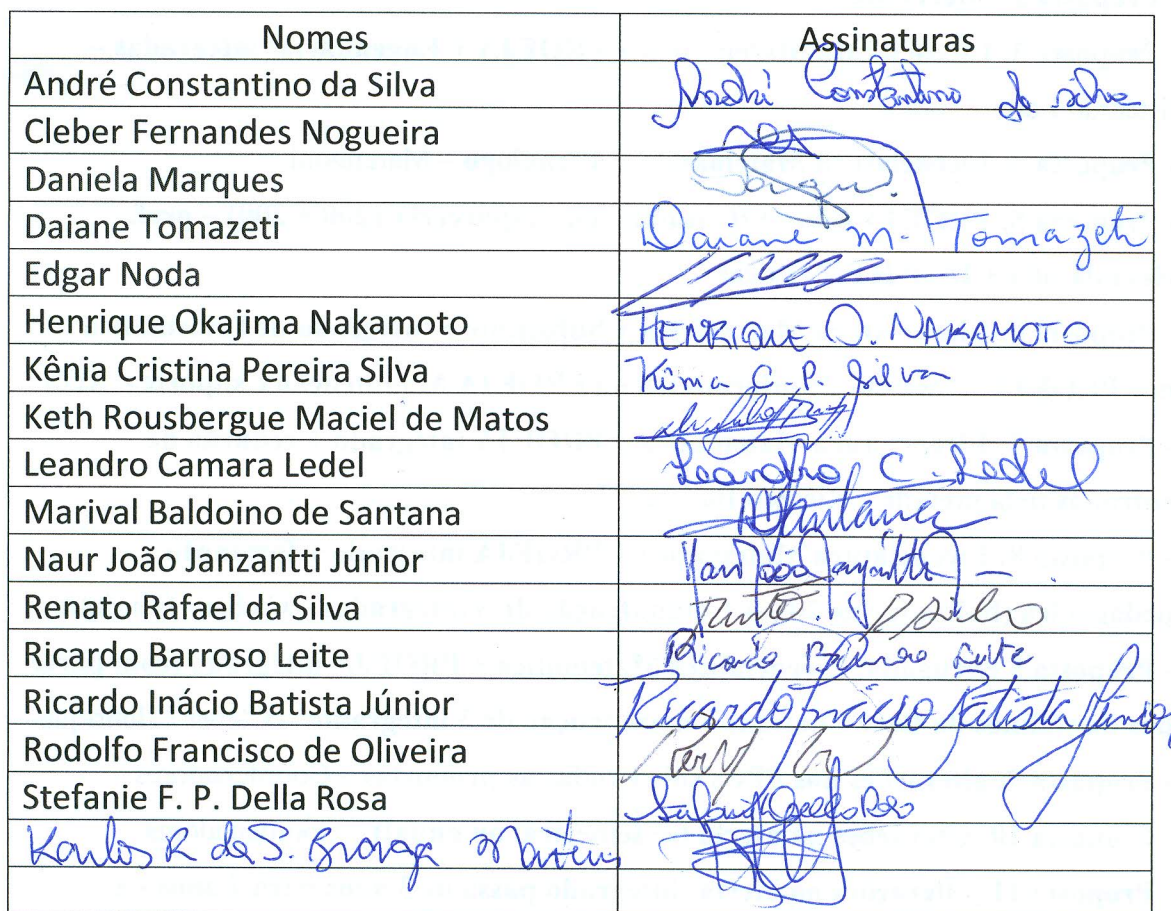 Nomes Assinaturas
André Constantino da Silva André Constantino da Silva
Cleber Fernandes Nogueira
Daniela Marques
Daiane Tomazeti Daiane M. Tomazeti
Edgar Noda
Henrique Okajima Nakamoto HENRIQUE O. NAKAMOTO
Kênia Cristina Pereira Silva Kênia C. P. Silva
Keth Rousbergue Maciel de Matos
Leandro Camara Ledel Leandro C. Ledel
Marival Baldoino de Santana MSantana
Naur João Janzantti Júnior Naur João Janzantti J
Renato Rafael da Silva
Ricardo Barroso Leite Ricardo Barroso Leite
Ricardo Inácio Batista Júnior Ricardo Inácio Batista Júnior
Rodolfo Francisco de Oliveira
Stefanie F. P. Della Rosa Stefanie Della Rosa
Karlos R de S. Braga Martins